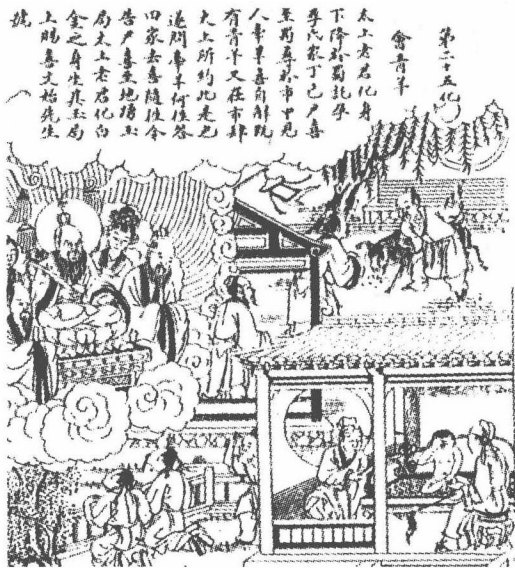 第二十五化
會青羊
太上老君化身
下降於蜀託孕
李氏家丁巳尹喜
至蜀尋於市中見
人牽羊喜自解既
有青羊又在市肆
太上所約此是也
遂問牽羊何往答
曰家去喜隨往令
告尹喜至地踴玉
局太上老君化白
金之身坐於玉局
上賜喜文始先生
號